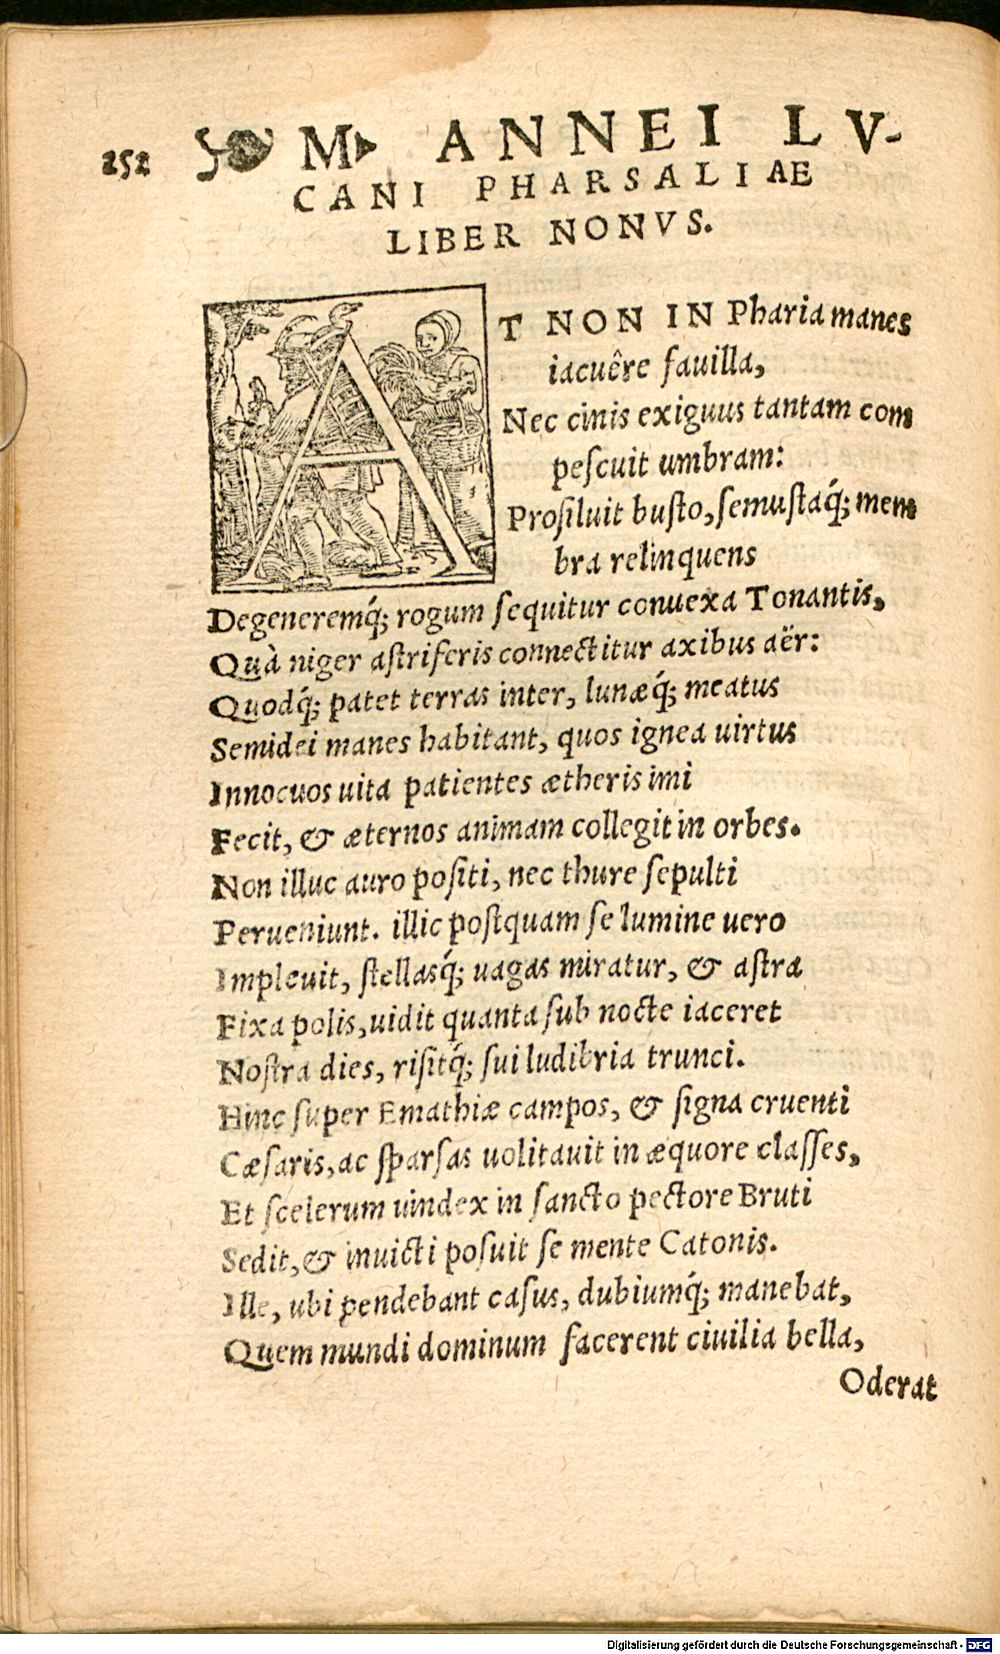 252
M. ANNEI LV-
CANI PHARSALIAE
LIBER NONVS.
AT NON IN Pharia manes
iacuêre fauilla,
Nec cinis exiguus tantam com
pescuit umbram:
Prosiluit busto, semustaq́; mem
bra relinquens
Degeneremq́; rogum sequitur conuexa Tonantis,
Quà niger astriferis connectitur axibus aër:
Quodq́; patet terras inter, lunæq́; meatus
Semidei manes habitant, quos ignea uirtus
Innocuos uita patientes ætheris imi
Fecit, & æternos animam collegit in orbes.
Non illuc auro positi, nec thure sepulti
Perueniunt. illic postquam se lumine uero
Impleuit, stellasq́; uagas miratur, & astra
Fixa polis, uidit quanta sub nocte iaceret
Nostra dies, risitq́; sui ludibria trunci.
Hinc super Emathiæ campos, & signa cruenti
Cæsaris, ac sparsas uolitauit in æquore classes,
Et scelerum uindex in sancto pectore Bruti
Sedit, & inuicti posuit se mente Catonis.
Ille, ubi pendebant casus, dubiumq́; manebat,
Quem mundi dominum facerent ciuilia bella,
Oderat
Digitalisierung gefördert durch die Deutsche Forschungsgemeinschaft - DFG